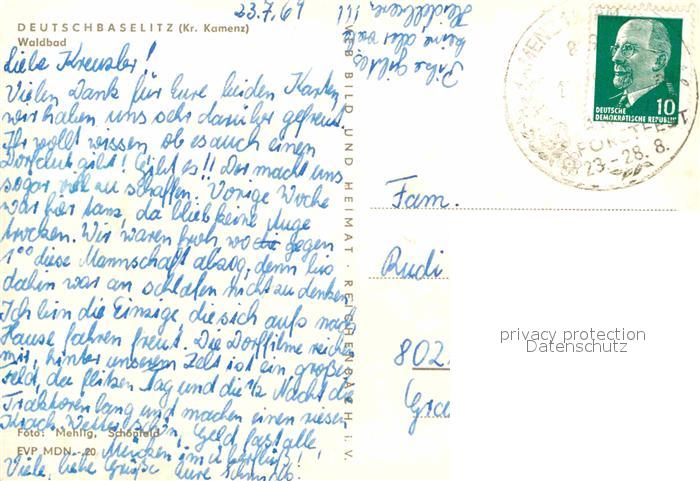 23.7.69
DEUTSCHBASELITZ (Kr. Kamenz)
Waldbad
Liebe Kreuzler!
Vielen Dank für Eure beiden Karten,
wir haben uns sehr darüber gefreut.
Ihr wollt wissen, ob es auch einen
Dorfclub gibt! Gibt es!! Der macht uns
sogar viel zu schaffen. Vorige Woche
war hier Tanz, da blieb keine Auge
trocken. Wir waren froh, wo gegen
1°° diese Mannschaft abzog, denn bis
dahin war an schlafen nicht zu denken.
Ich bin die Einzige die sich aufs nach
Hause fahren freut. Die Dorffilme reichen
mir, hinter unserem Zelt ist ein großes
Feld, da flitzen Tag und die ½ Nacht die
Traktoren lang und machen einen riesen
Krach. Wetter schön, Geld fast alle,
Foto: Mehlig, Schönfeld
Mücken im Überfluß!
EVP MDN -.20
Viele, liebe Grüße Eure
VEB BILD UND HEIMAT · REICHENBACH I. V.
gibt es
keine, aber
Heidelbeere, !!!
10
DEUTSCHE
DEMOKRATISCHE REPUBLIK
KAMENZ
FORSTFEST
23.-28.8.
Fam.
Rudi
802
privacy protection
Datenschutz